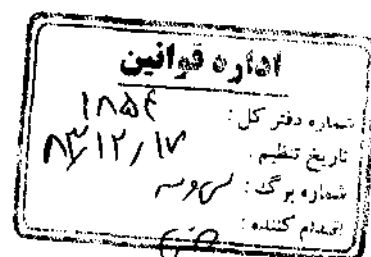 اداره قوانین
شماره دفتر کل: ۱۸۵۴
تاریخ تنظیم: ۸۳/۱۲/۱۷
شماره برگ: سی و سه
اقدام کننده: